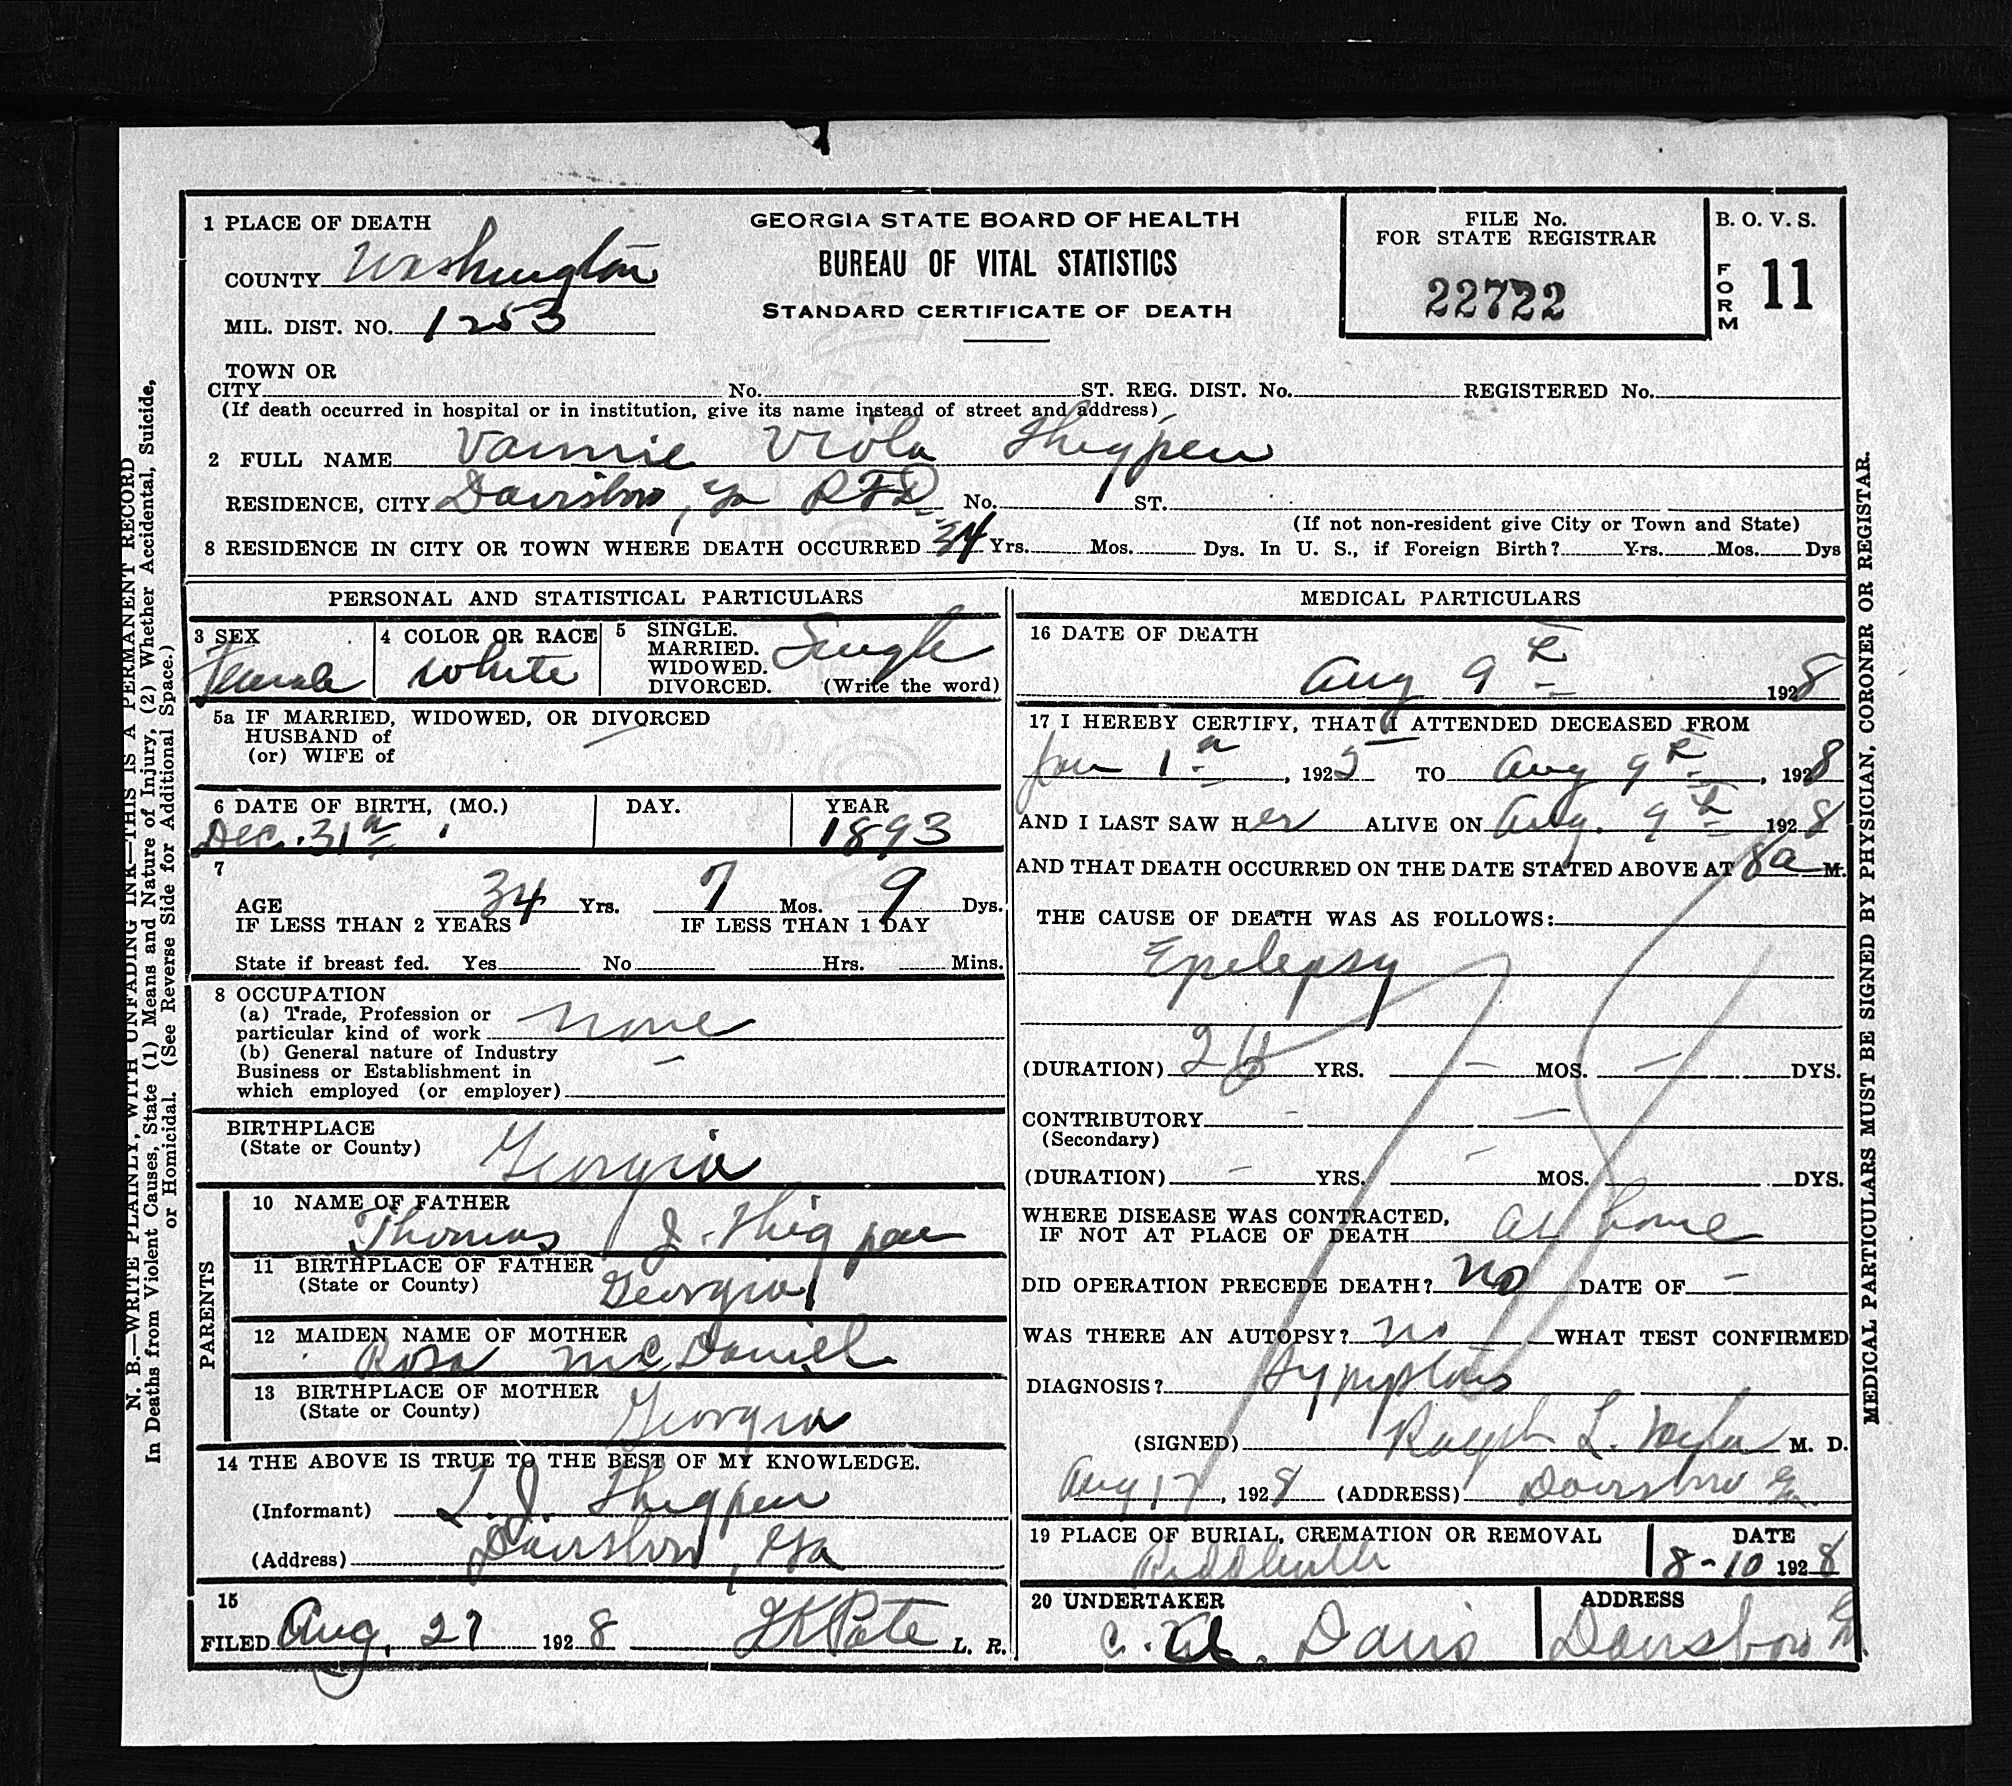 1 PLACE OF DEATH
COUNTY Washington
MIL. DIST. NO. 1253
GEORGIA STATE BOARD OF HEALTH
BUREAU OF VITAL STATISTICS
STANDARD CERTIFICATE OF DEATH
FILE No.
FOR STATE REGISTRAR
22722
B. O. V. S.
FORM 11
TOWN OR
CITY No. ST. REG. DIST. No. REGISTERED No.
(If death occurred in hospital or in institution, give its name instead of street and address)
2 FULL NAME Vannie Viola Thigpen
RESIDENCE, CITY Davisboro, Ga RFD No. ST.
(If not non-resident give City or Town and State)
8 RESIDENCE IN CITY OR TOWN WHERE DEATH OCCURRED 34 Yrs. Mos. Dys. In U. S., if Foreign Birth? Yrs. Mos. Dys
PERSONAL AND STATISTICAL PARTICULARS
3 SEX
Female
4 COLOR OR RACE
White
5 SINGLE.
MARRIED.
WIDOWED.
DIVORCED.
Single
(Write the word)
5a IF MARRIED, WIDOWED, OR DIVORCED
HUSBAND of
(or) WIFE of
6 DATE OF BIRTH, (MO.) DAY. YEAR
Dec. 31 1893
7
AGE 34 Yrs. 7 Mos. 9 Dys.
IF LESS THAN 2 YEARS IF LESS THAN 1 DAY
State if breast fed. Yes No Hrs. Mins.
8 OCCUPATION
(a) Trade, Profession or
particular kind of work none
(b) General nature of Industry
Business or Establishment in
which employed (or employer)
BIRTHPLACE
(State or County) Georgia
PARENTS
10 NAME OF FATHER
Thomas J. Thigpen
11 BIRTHPLACE OF FATHER
(State or County) Georgia
12 MAIDEN NAME OF MOTHER
Rosa McDaniel
13 BIRTHPLACE OF MOTHER
(State or County) Georgia
14 THE ABOVE IS TRUE TO THE BEST OF MY KNOWLEDGE.
(Informant) T. J. Thigpen
(Address) Davisboro, Ga
15
FILED Aug. 27 1928 Pate L. R.
MEDICAL PARTICULARS
16 DATE OF DEATH
Aug 9th 1928
17 I HEREBY CERTIFY, THAT I ATTENDED DECEASED FROM
Jan 1, 1925 TO Aug 9th, 1928
AND I LAST SAW Her ALIVE ON Aug. 9th 1928
AND THAT DEATH OCCURRED ON THE DATE STATED ABOVE AT 8a M.
THE CAUSE OF DEATH WAS AS FOLLOWS:
Epilepsy
(DURATION) YRS. — MOS. — DYS.
CONTRIBUTORY - —
(Secondary)
(DURATION) - YRS. - MOS. DYS.
WHERE DISEASE WAS CONTRACTED,
IF NOT AT PLACE OF DEATH at home
DID OPERATION PRECEDE DEATH? no DATE OF -
WAS THERE AN AUTOPSY? no WHAT TEST CONFIRMED
DIAGNOSIS?
(SIGNED) Ralph L. M. D.
Aug 17, 1928 (ADDRESS) Davisboro Ga.
19 PLACE OF BURIAL, CREMATION OR REMOVAL DATE
Riddleville 8-10 1928
20 UNDERTAKER ADDRESS
Davis Davisboro Ga.
N. B.—WRITE PLAINLY, WITH UNFADING INK—THIS IS A PERMANENT RECORD
In Deaths from Violent Causes, State (1) Means and Nature of Injury, (2) Whether Accidental, Suicide,
or Homicidal. (See Reverse Side for Additional Space.)
MEDICAL PARTICULARS MUST BE SIGNED BY PHYSICIAN, CORONER OR REGISTAR.